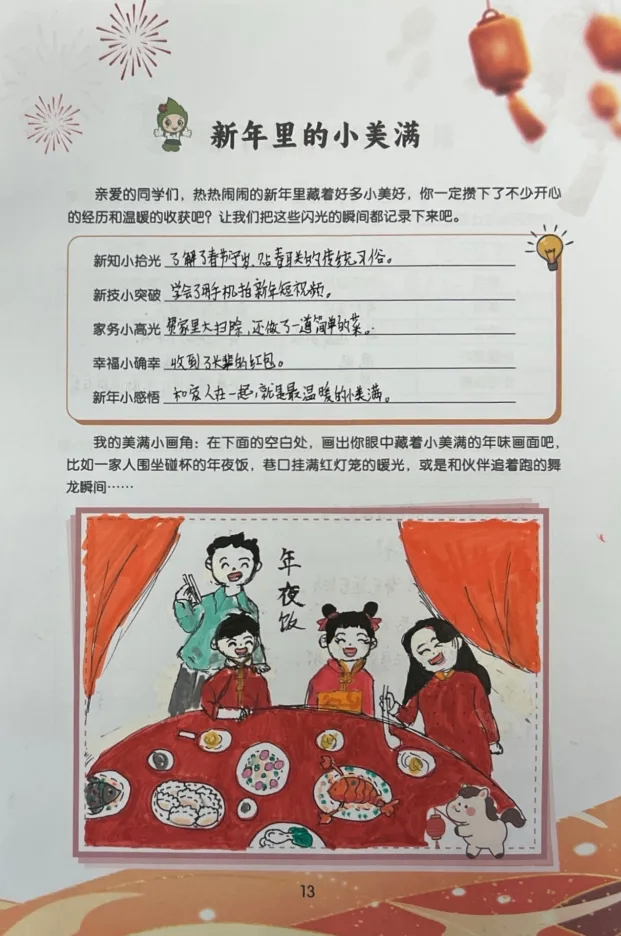 新年里的小美满
亲爱的同学们，热热闹闹的新年里藏着好多小美好，你一定攒下了不少开心
的经历和温暖的收获吧？让我们把这些闪光的瞬间都记录下来吧。
新知小拾光 了解了春节守岁、贴春联的传统习俗。
新技小突破 学会了用手机拍新年短视频。
家务小高光 帮家里大扫除，还做了一道简单的菜。
幸福小确幸 收到了长辈的红包。
新年小感悟 和家人在一起，就是最温暖的小美满。
我的美满小画角：在下面的空白处，画出你眼中藏着小美满的年味画面吧，
比如一家人围坐碰杯的年夜饭，巷口挂满红灯笼的暖光，或是和伙伴追着跑的舞
龙瞬间……
年夜饭
13